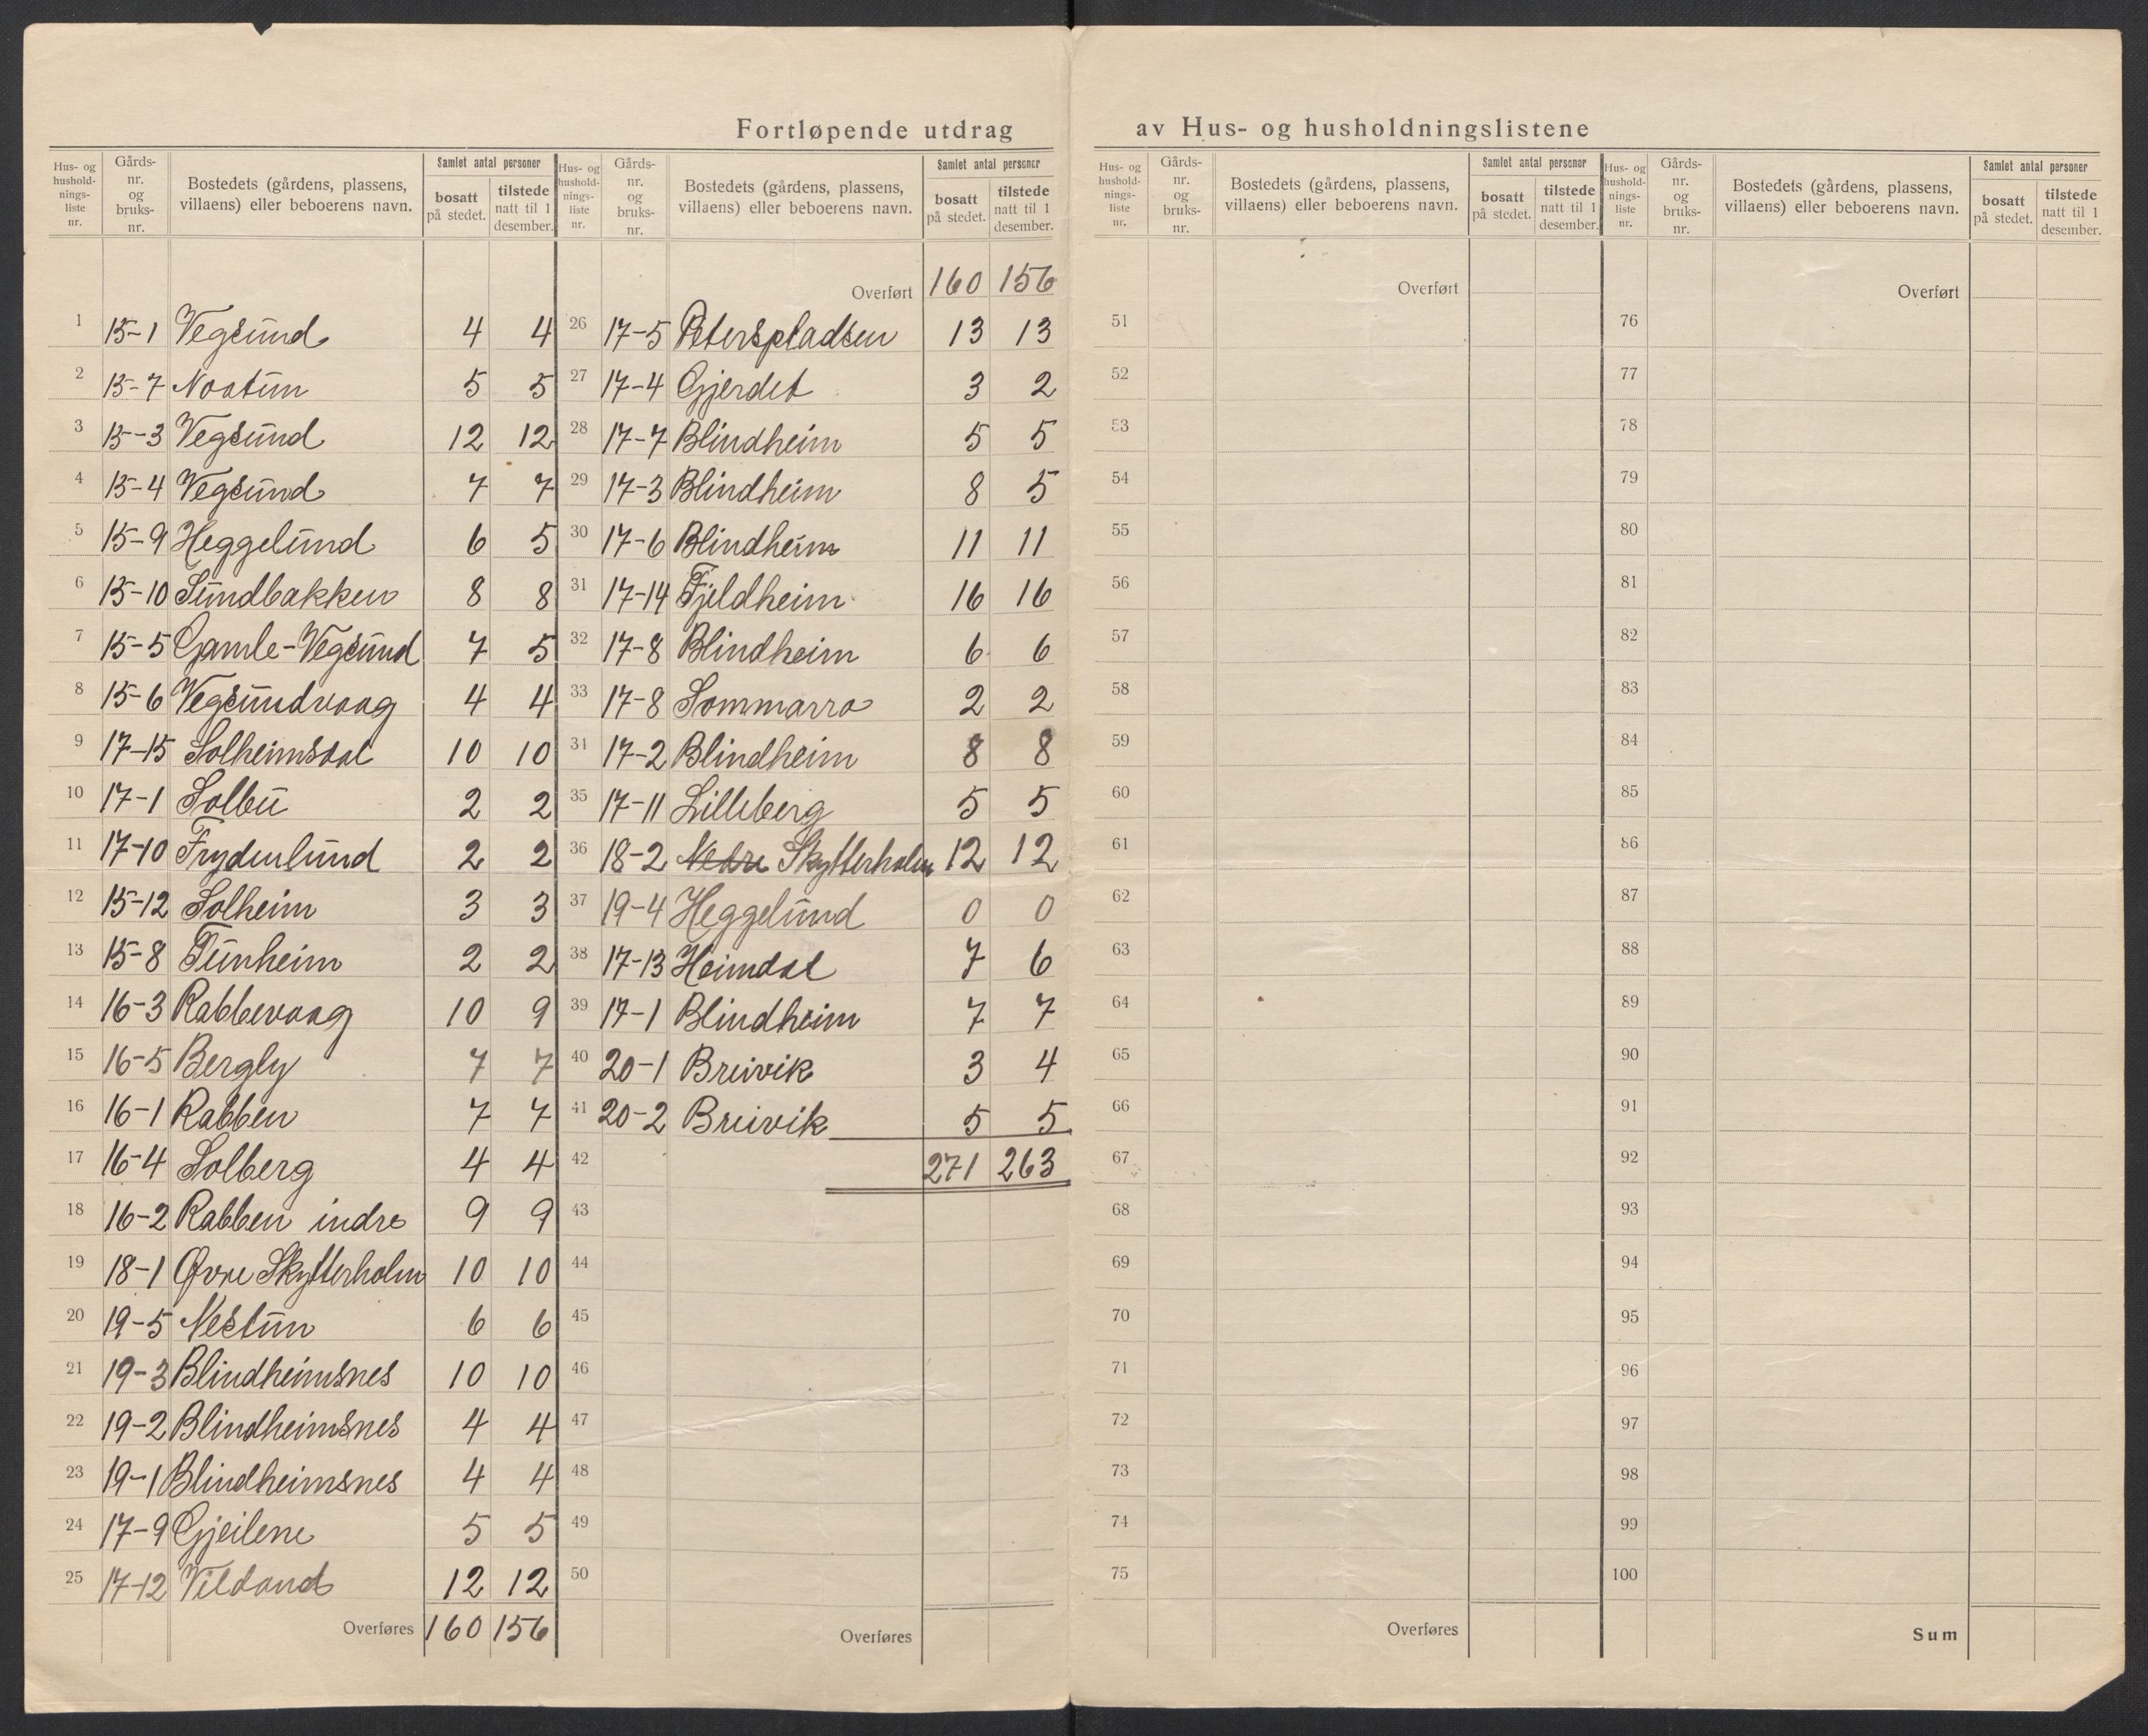 Fortløpende utdrag av Hus- og husholdningslistene
Hus- og hushold-nings-liste nr. | Gårds-nr. og bruks-nr. | Bostedets (gårdens, plassens, villaens) eller beboerens navn. | Samlet antal personer | bosatt på stedet. | tilstede natt til 1 desember.
1 15-1 Vegsund 4 4
2 15-7 Noatun 5 5
3 15-3 Vegsund 12 12
4 15-4 Vegsund 7 7
5 15-9 Heggelund 6 5
6 15-10 Sundbakken 8 8
7 15-5 Gamle-Vegsund 7 5
8 15-6 Vegsundvaag 4 4
9 17-15 Solheimsdal 10 10
10 17-1 Solbu 2 2
11 17-10 Frydenlund 2 2
12 15-12 Solheim 3 3
13 15-8 Tunheim 2 2
14 16-3 Rabbevaag 10 9
15 16-5 Bergly 7 7
16 16-1 Rabben 7 7
17 16-4 Solberg 4 4
18 16-2 Rabben indre 9 9
19 18-1 Øvre Skytterholm 10 10
20 19-5 Nestun 6 6
21 19-3 Blindheimsnes 10 10
22 19-2 Blindheimsnes 4 4
23 19-1 Blindheimsnes 4 4
24 17-9 Gjeilene 5 5
25 17-12 Vildand 12 12
Overføres 160 156
Hus- og hushold-nings-liste nr. | Gårds-nr. og bruks-nr. | Bostedets (gårdens, plassens, villaens) eller beboerens navn. | Samlet antal personer | bosatt på stedet. | tilstede natt til 1 desember.
Overført 160 156
26 17-5 Peterspladsen 13 13
27 17-4 Gjerdet 3 2
28 17-7 Blindheim 5 5
29 17-3 Blindheim 8 5
30 17-6 Blindheim 11 11
31 17-14 Fjeldheim 16 16
32 17-8 Blindheim 6 6
33 17-8 Sommarro 2 2
31 17-2 Blindheim 8 8
35 17-11 Lilleberg 5 5
36 18-2 Nedre Skytterholm 12 12
37 19-4 Heggelund 0 0
38 17-13 Heimdal 7 6
39 17-1 Blindheim 7 7
40 20-1 Breivik 3 4
41 20-2 Breivik 5 5
42 271 263
43
44
45
46
47
48
49
50
Overføres
Hus- og hushold-nings-liste nr. | Gårds-nr. og bruks-nr. | Bostedets (gårdens, plassens, villaens) eller beboerens navn. | Samlet antal personer | bosatt på stedet. | tilstede natt til 1 desember.
Overført
51
52
53
54
55
56
57
58
59
60
61
62
63
64
65
66
67
68
69
70
71
72
73
74
75
Overføres
Hus- og hushold-nings-liste nr. | Gårds-nr. og bruks-nr. | Bostedets (gårdens, plassens, villaens) eller beboerens navn. | Samlet antal personer | bosatt på stedet. | tilstede natt til 1 desember.
Overført
76
77
78
79
80
81
82
83
84
85
86
87
88
89
90
91
92
93
94
95
96
97
98
99
100
Sum